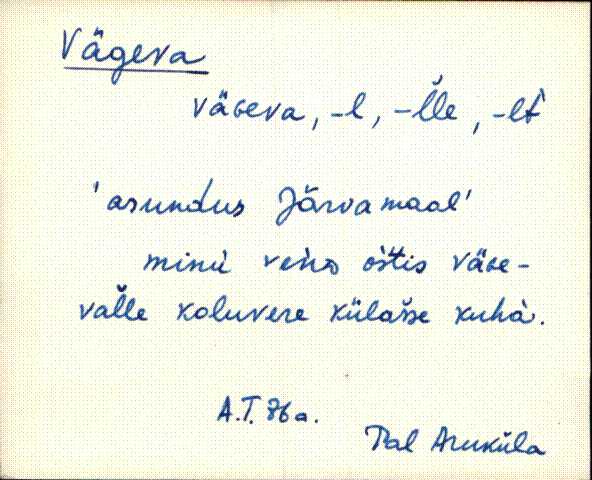 Vägeva
väGeva, -l, -l̆le, -lt̀
'asundus Järvamaal'
minù veǹD ošt̀is väGe-
val̆le koluvere külas̀se kuhà.
A.T. 76 a.
Pal Aruküla